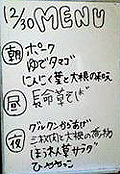 12/30 MENU
朝 ポーク
ゆでタマゴ
にんにく葉と大根の和え
昼 長命草そば
夜 グルクンからあげ
三枚肉と大根の煮物
ほうれん草サラダ
ひややっこ